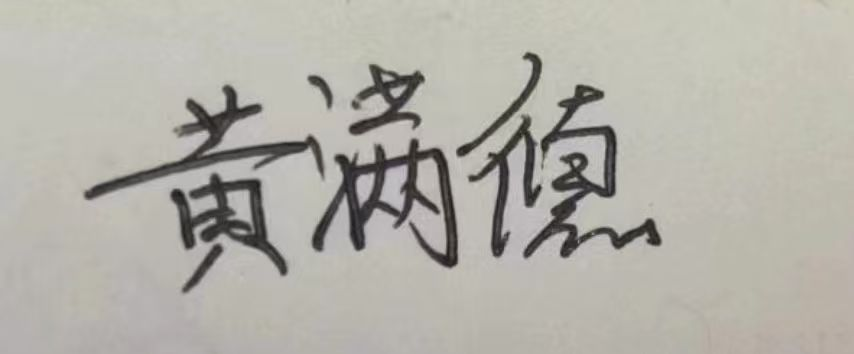 黄满德